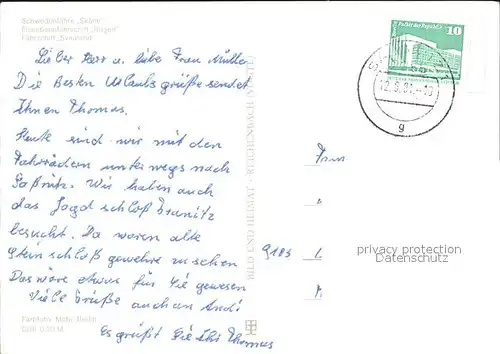 Schwedenfähre „Skåne“
Eisenbahnfährschiff „Rügen“
Fährschiff
Lieber Herr u. liebe Frau Müller
Die Besten Urlaubsgrüße sendet
Ihnen Thomas.
Heute sind wir mit den
Fahrrädern unterwegs nach
Saßnitz. Wir haben auch
das Jagdschloß Granitz
besucht. Da waren alte
Stein schloß gewehre zu sehen
Das wäre etwas für Sie gewesen
Viele Grüße auch an Andi
Es grüßt Sie Ihr Thomas
BILD UND HEIMAT REICHENBACH (VOGTL)
Palast der Republik
10
12.5.81.-10
g
Frau
9103
privacy protection
Datenschutz